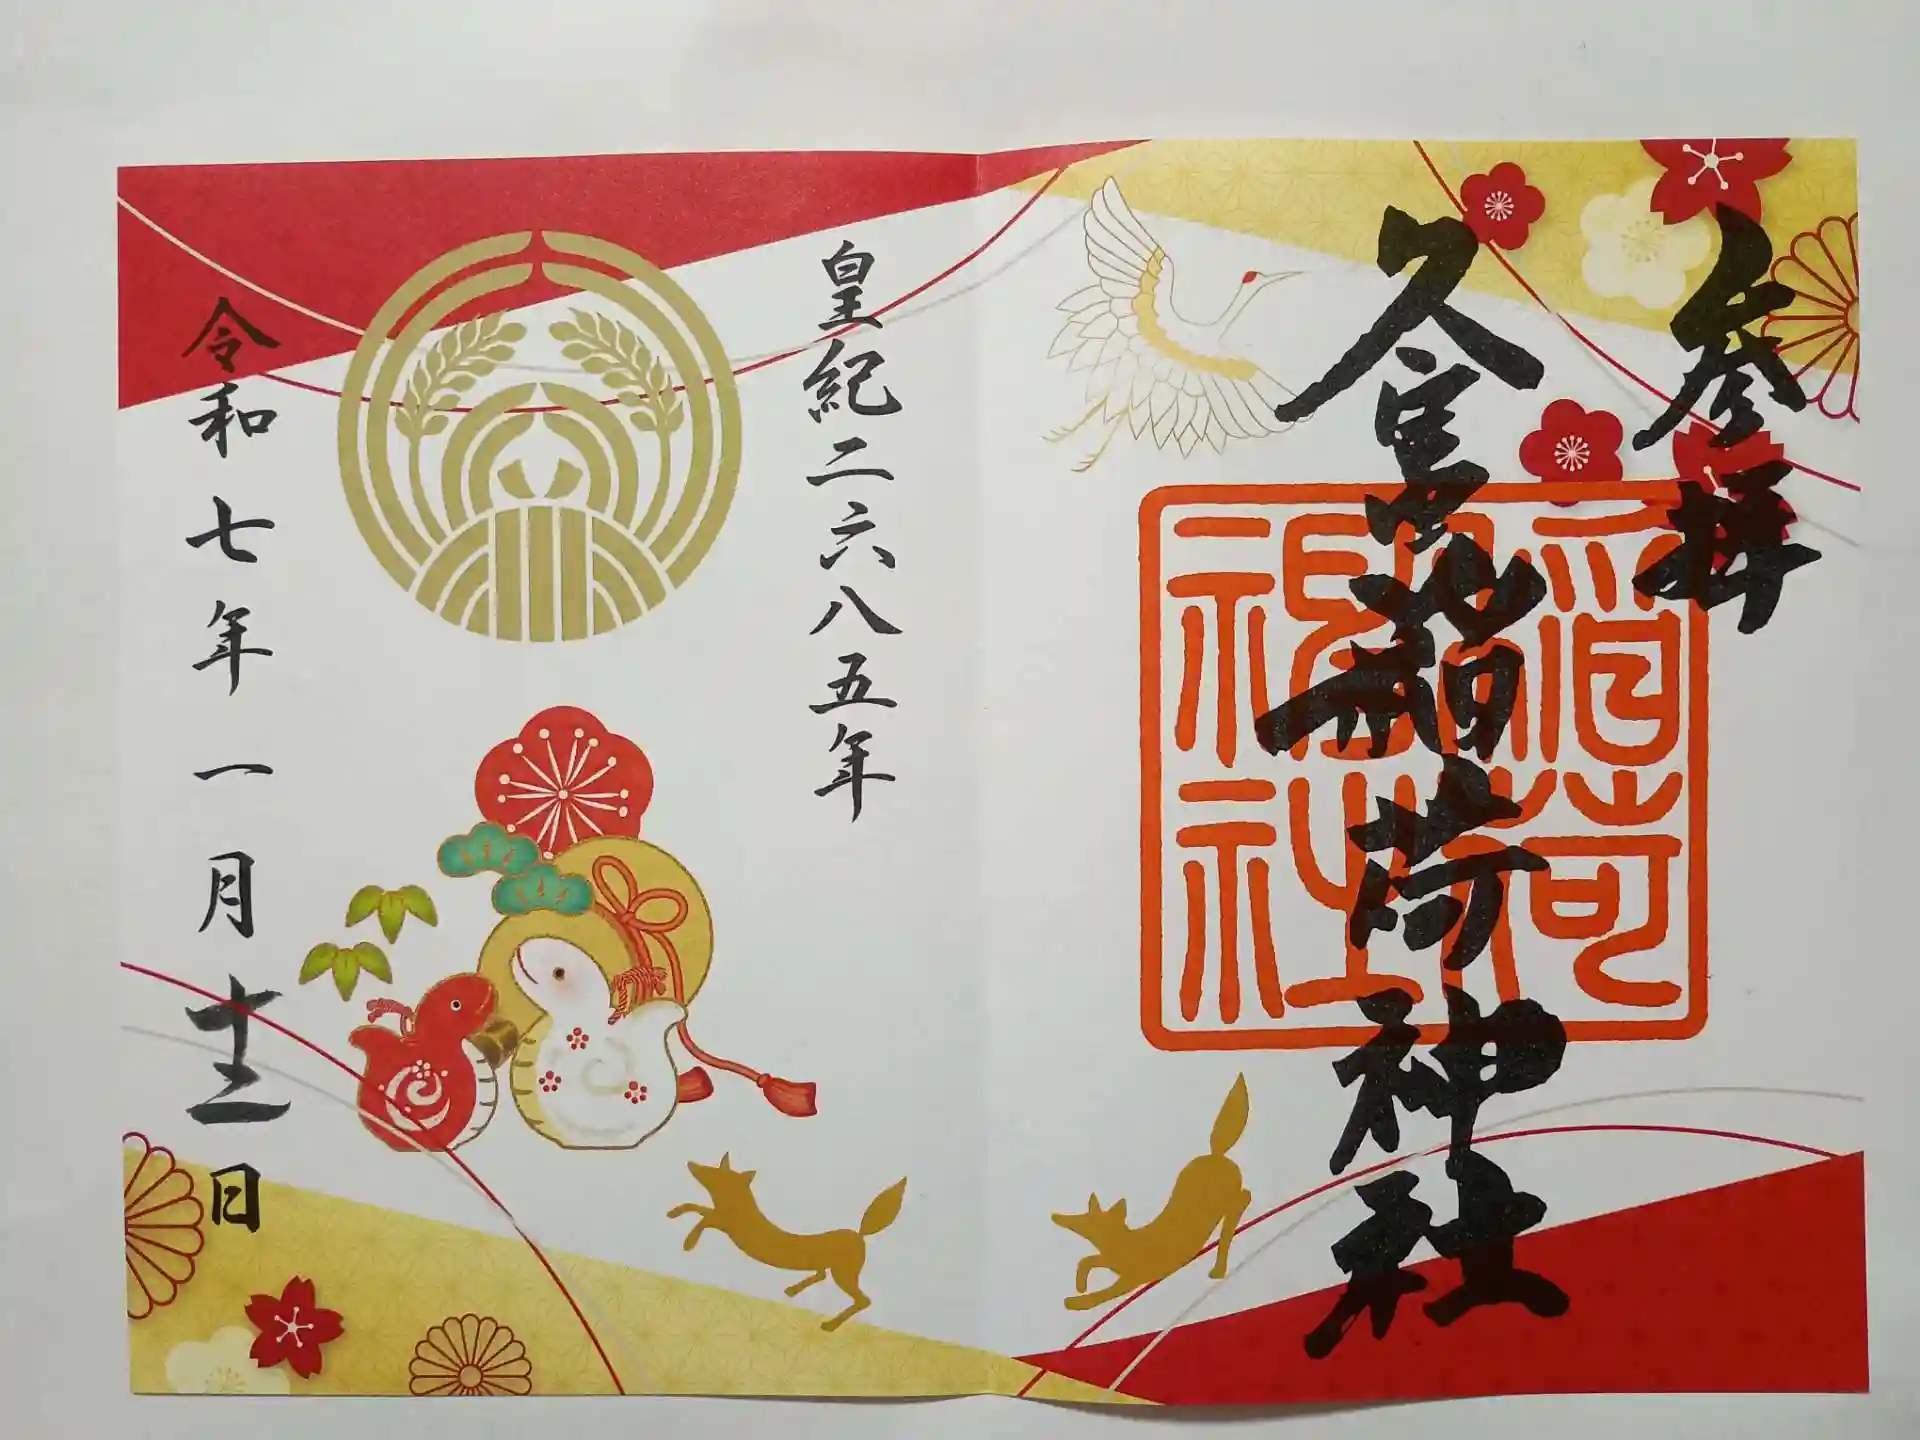 参拝
久宮地稲荷神社
稲荷
神社
皇紀二六八五年
令和七年一月十二日